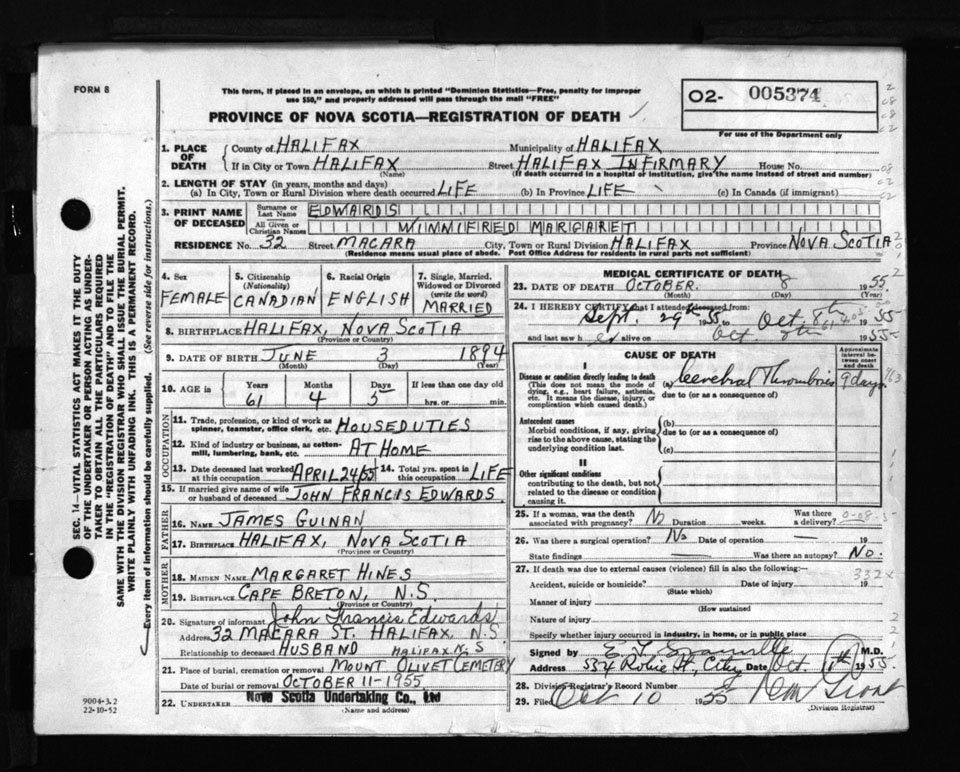 FORM 8
This form, if placed in an envelope, on which is printed "Dominion Statistics—Free, penalty for improper
use $50," and properly addressed will pass through the mail "FREE"
PROVINCE OF NOVA SCOTIA—REGISTRATION OF DEATH
O2- 005374
For use of the Department only
1. PLACE OF DEATH
County of HALIFAX Municipality of HALIFAX
If in City or Town HALIFAX Street HALIFAX INFIRMARY House No.
(Name) (If death occurred in a hospital or institution, give the name instead of street and number)
2. LENGTH OF STAY (in years, months and days)
(a) In City, Town or Rural Division where death occurred LIFE (b) In Province LIFE (c) In Canada (if immigrant)
3. PRINT NAME OF DECEASED
Surname or Last Name EDWARDS
All Given or Christian Names WINNIFRED MARGARET
RESIDENCE No. 32 Street MACARA City, Town or Rural Division HALIFAX Province NOVA SCOTIA
(Residence means usual place of abode. Post Office Address for residents in rural parts not sufficient)
4. Sex FEMALE
5. Citizenship (Nationality) CANADIAN
6. Racial Origin ENGLISH
7. Single, Married, Widowed or Divorced (write the word) MARRIED
8. BIRTHPLACE HALIFAX, NOVA SCOTIA
(Province or Country)
9. DATE OF BIRTH JUNE 3 1894
(Month) (Day) (Year)
10. AGE in Years 61 Months 4 Days 5 If less than one day old hrs. or min.
OCCUPATION
11. Trade, profession, or kind of work as spinner, teamster, office clerk, etc. HOUSEDUTIES
12. Kind of industry or business, as cotton-mill, lumbering, bank, etc. AT HOME
13. Date deceased last worked at this occupation APRIL 24/55 14. Total yrs. spent in this occupation LIFE
15. If married give name of wife or husband of deceased JOHN FRANCIS EDWARDS.
FATHER
16. NAME JAMES GUINAN
17. BIRTHPLACE HALIFAX, NOVA SCOTIA
(Province or Country)
MOTHER
18. MAIDEN NAME MARGARET HINES
19. BIRTHPLACE CAPE BRETON, N.S.
(Province or Country)
20. Signature of informant John Francis Edwards
Address 32 MACARA ST. HALIFAX, N.S.
Relationship to deceased HUSBAND
HALIFAX, N.S
21. Place of burial, cremation or removal MOUNT OLIVET CEMETERY
Date of burial or removal OCTOBER 11-1955
22. UNDERTAKER Nova Scotia Undertaking Co., Ltd
(Name and address)
MEDICAL CERTIFICATE OF DEATH
23. DATE OF DEATH OCTOBER. 8 1955.
(Month) (Day) (Year)
24. I HEREBY CERTIFY that I attended deceased from:
Sept. 29th 1955 to Oct. 8th 1955
and last saw her alive on Oct. 1955
CAUSE OF DEATH
Approximate interval between onset and death
I
Disease or condition directly leading to death
(This does not mean the mode of dying, e.g., heart failure, asthenia, etc. It means the disease, injury, or complication which caused death.)
(a) Cerebral Thrombosis 9 days
due to (or as a consequence of)
Antecedent causes
Morbid conditions, if any, giving rise to the above cause, stating the underlying condition last.
(b)
due to (or as a consequence of)
(c)
II
Other significant conditions
contributing to the death, but not related to the disease or condition causing it.
25. If a woman, was the death associated with pregnancy? No Duration weeks. Was there a delivery?
26. Was there a surgical operation? No Date of operation — 19
State findings — Was there an autopsy? No.
27. If death was due to external causes (violence) fill in also the following:—
332x
Accident, suicide or homicide? Date of injury 19
(State which)
Manner of injury
(How sustained
Nature of injury
Specify whether injury occurred in industry, in home, or in public place
Signed by M.D.
Address Robie St, City Date Oct 1955
28. Division Registrar's Record Number
29. Filed Oct 10 1955
(Division Registrar)
SEC. 14—VITAL STATISTICS ACT MAKES IT THE DUTY
OF THE UNDERTAKER OR PERSON ACTING AS UNDER-
TAKER TO OBTAIN ALL THE PARTICULARS REQUIRED
IN THE "REGISTRATION OF DEATH" AND TO FILE THE
SAME WITH THE DIVISION REGISTRAR WHO SHALL ISSUE THE BURIAL PERMIT.
WRITE PLAINLY WITH UNFADING INK. THIS IS A PERMANENT RECORD.
Every item of information should be carefully supplied. (See reverse side for instructions.)
9004-3.2
22-10-52